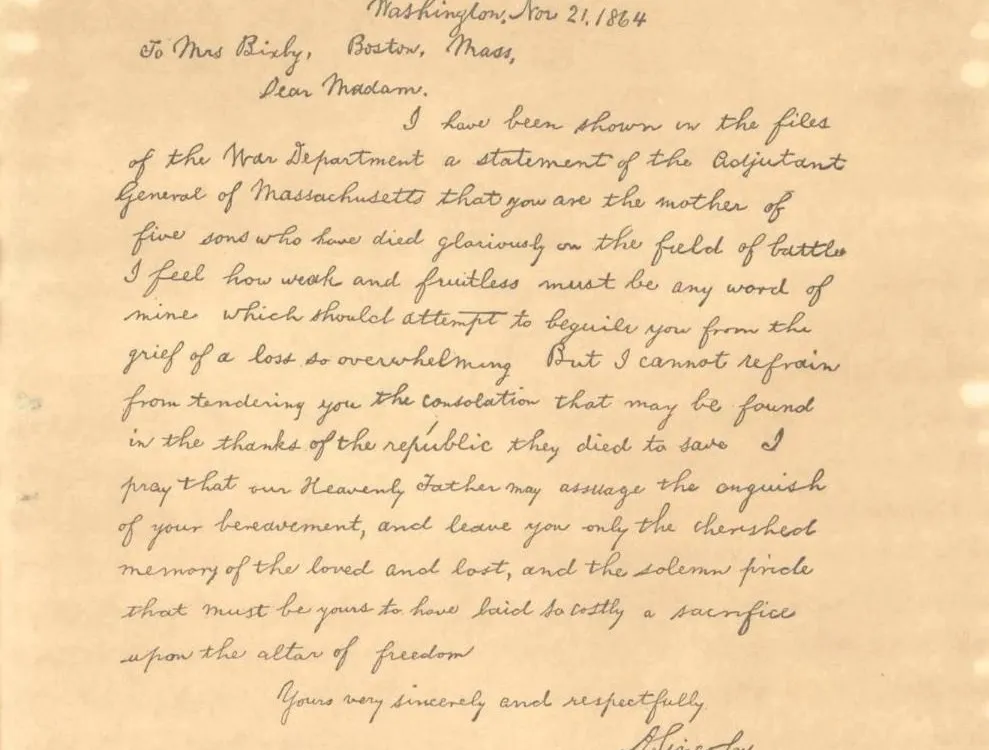 Washington, Nov 21, 1864
To Mrs Bixby, Boston, Mass,
Dear Madam.
I have been shown in the files
of the War Department a statement of the Adjutant
General of Massachusetts that you are the mother of
five sons who have died gloriously on the field of battle
I feel how weak and fruitless must be any word of
mine which should attempt to beguile you from the
grief of a loss so overwhelming But I cannot refrain
from tendering you the consolation that may be found
in the thanks of the republic they died to save I
pray that our Heavenly Father may assuage the anguish
of your bereavement, and leave you only the cherished
memory of the loved and lost, and the solemn pride
that must be yours to have laid so costly a sacrifice
upon the altar of freedom
Yours very sincerely and respectfully
A Lincoln